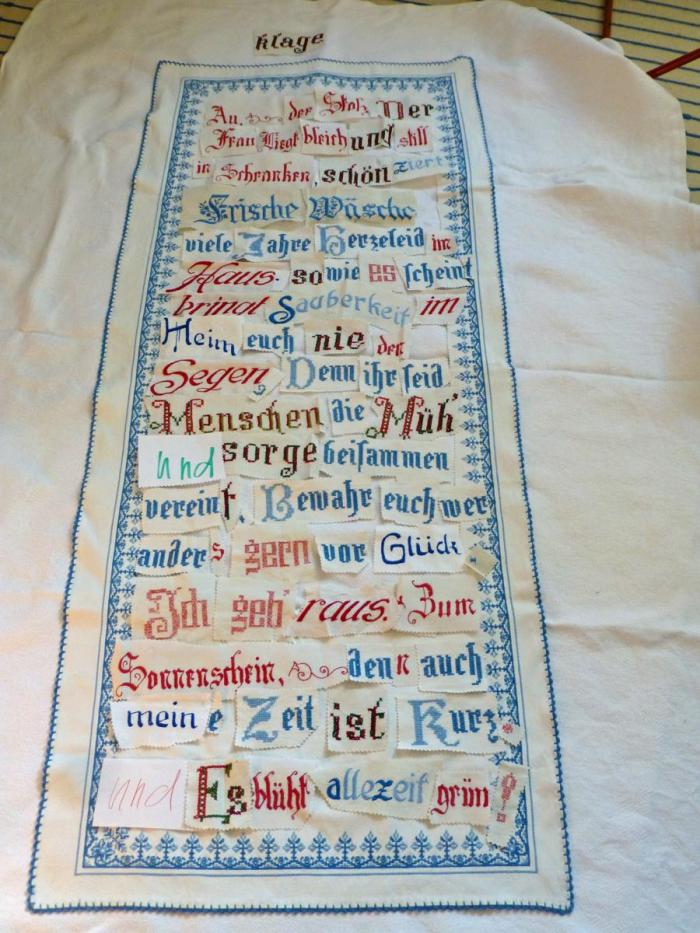 klage
Au, der Stolz Der
Frau Liegt bleich und still
in Schranken, schön ziert
Frische Wäsche
viele Jahre Herzeleid im
Haus. so wie es scheint
bringt Sauberkeit im
Heim euch nie der
Segen, Denn ihr seid
Menschen die Müh'
und sorge beisammen
vereint, Bewahr euch wer
anders gern vor Glück
Ich geb' raus. Zum
Sonnenschein, denn auch
meine Zeit ist Kurz
und Es blüht allezeit grün!